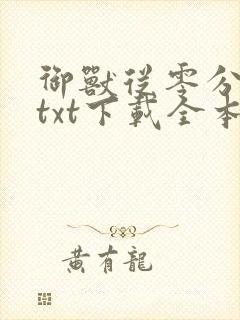 御獸從零分
txt下載全本
黃有龍